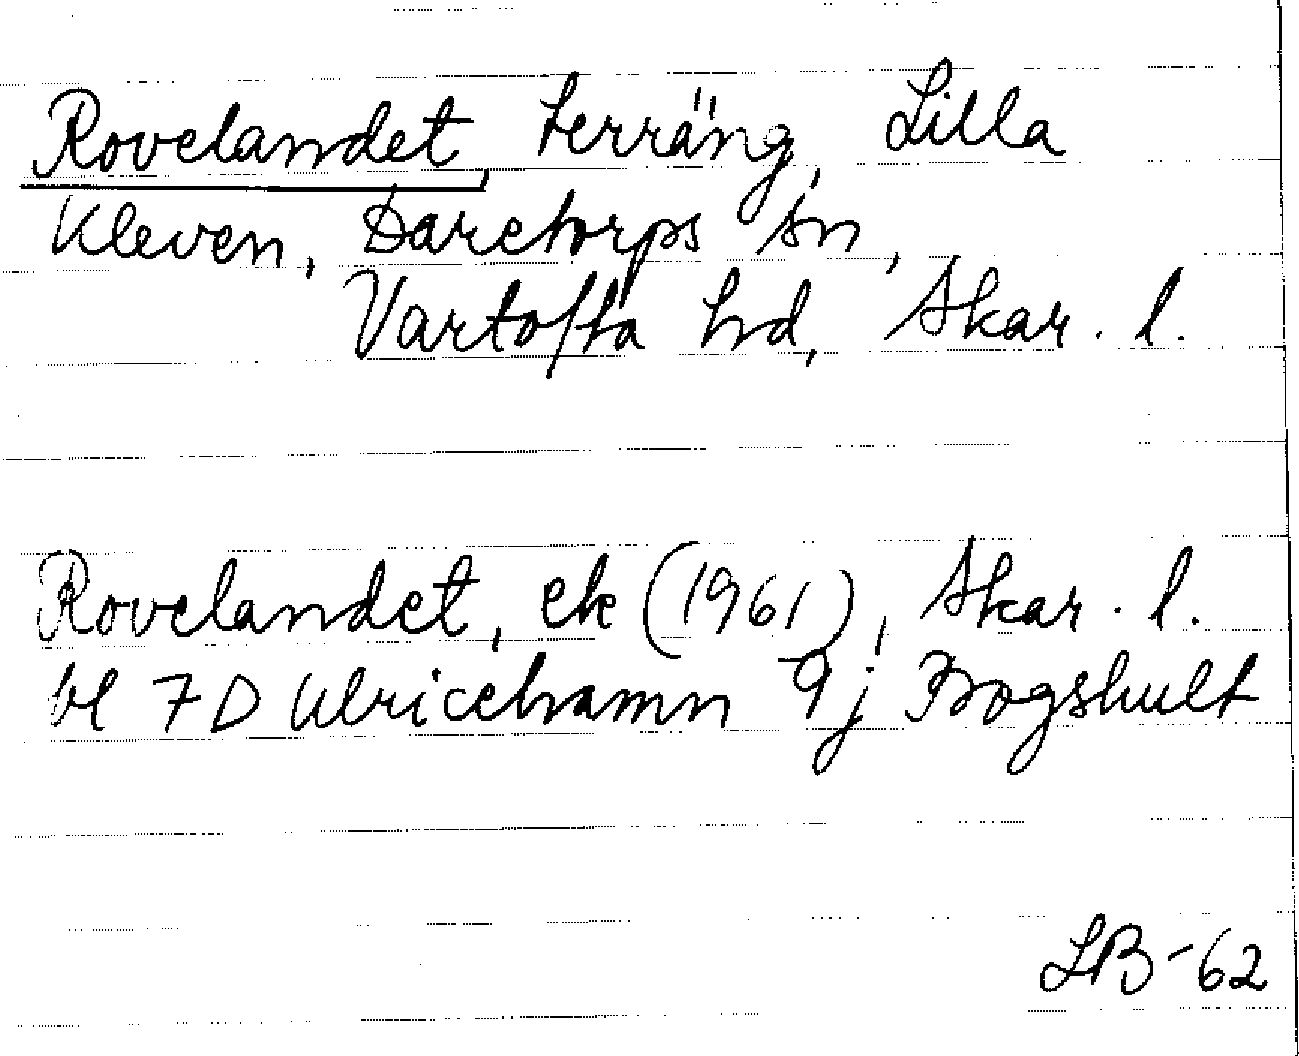 Rovelandet, terräng, Lilla
Kleven, Daretorps sn,
Vartofta hd, Skar. l.
Rovelandet, ek (1961), Skar. l.
bl 7D Ulricehamn 9j Brogshult
LB-62